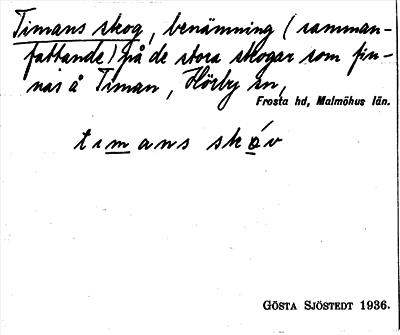 Timans skog, benämning (samman-
fattande) på de stora skogar som fin-
nas å Timan, Hörby sn,
Frosta hd, Malmöhus län.
tımans skǫ́v
GÖSTA SJÖSTEDT 1936.